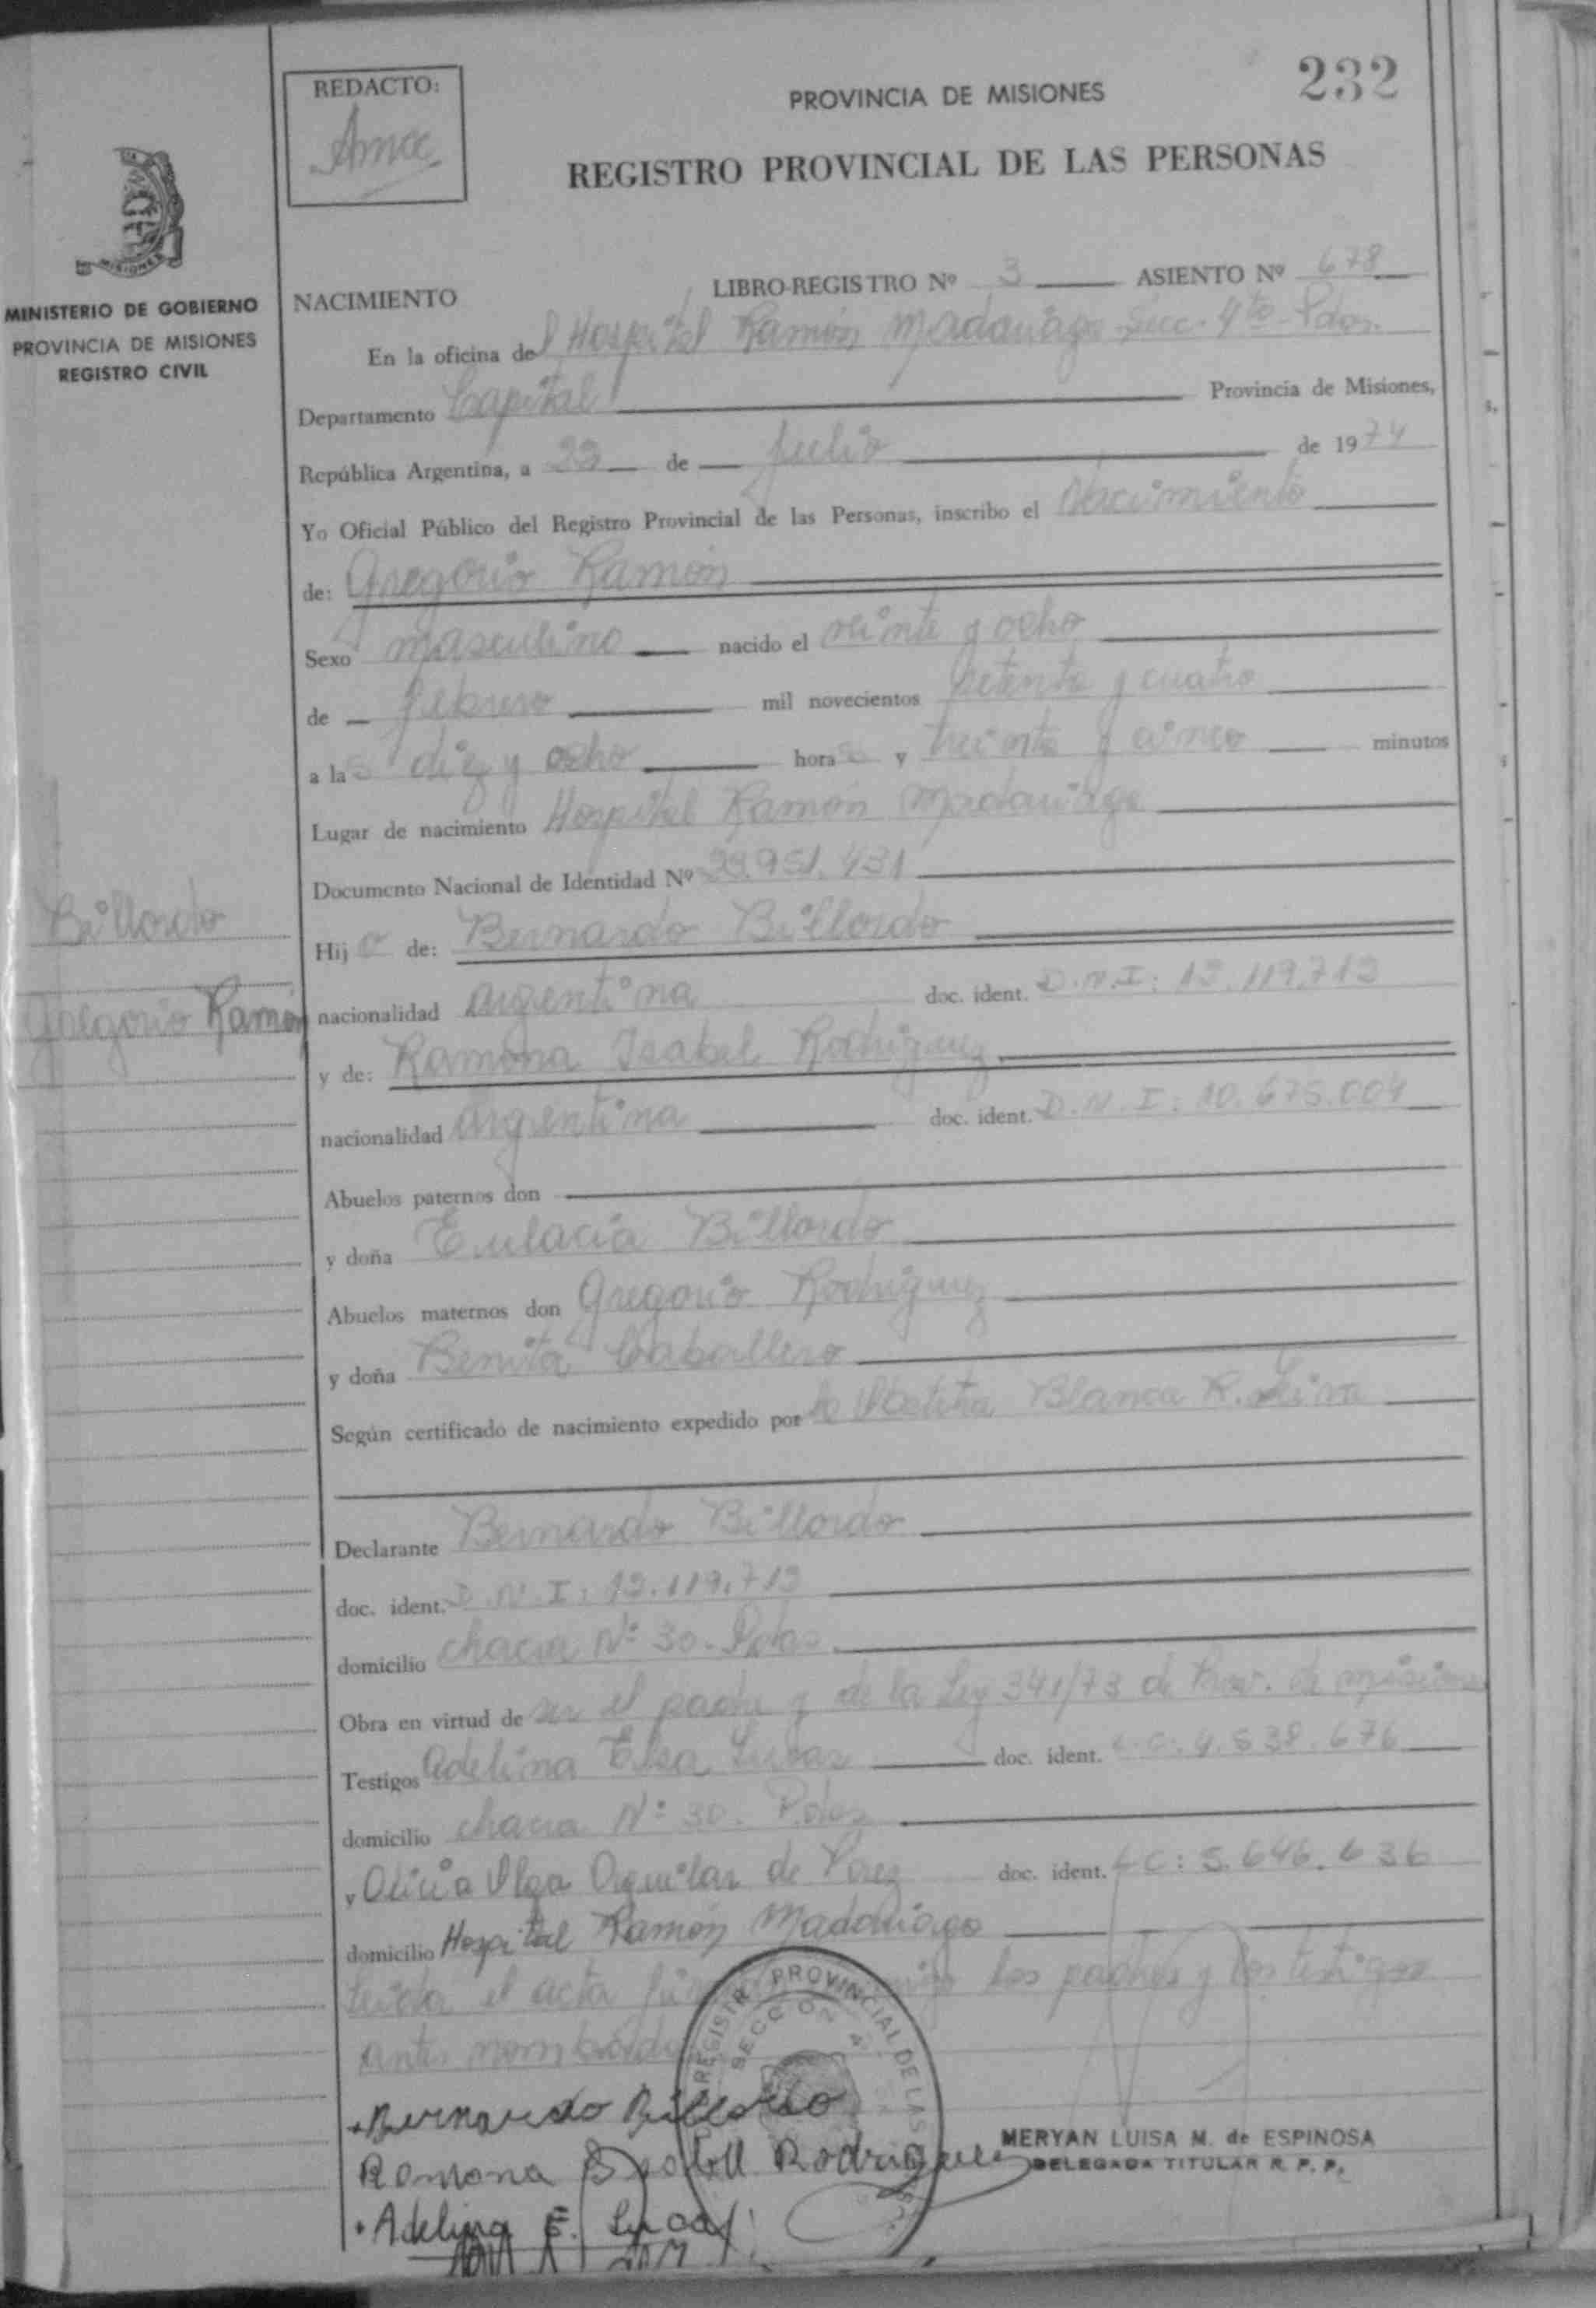 232
REDACTO:
PROVINCIA DE MISIONES
REGISTRO PROVINCIAL DE LAS PERSONAS
MISIONES
MINISTERIO DE GOBIERNO
PROVINCIA DE MISIONES
REGISTRO CIVIL
NACIMIENTO
LIBRO-REGISTRO Nº 3 ASIENTO Nº 678
En la oficina del Hospital Ramón Madariaga Secc. 4ta Pdas.
Departamento Capital Provincia de Misiones,
República Argentina, a 23 de julio de 1974
Yo Oficial Público del Registro Provincial de las Personas, inscribo el Nacimiento
de: Gregorio Ramón
Sexo masculino nacido el veinte y ocho
de febrero mil novecientos setenta y cuatro
a las diez y ocho horas y treinta y cinco minutos
Lugar de nacimiento Hospital Ramón Madariaga
Documento Nacional de Identidad Nº 23.951.431
Billordo
Hijo de: Bernardo Billordo
Gregorio Ramón
nacionalidad argentina doc. ident. D.N.I: 12.119.712
y de: Ramona Isabel Rodriguez
nacionalidad argentina doc. ident. D.N.I: 10.675.004
Abuelos paternos don
y doña Eulacia Billordo
Abuelos maternos don Gregorio Rodriguez
y doña Benita Caballero
Según certificado de nacimiento expedido por la Obstetra Blanca R. Leiva
Declarante Bernardo Billordo
doc. ident. D.N.I: 12.119.712
domicilio chacra Nº 30. Pdas
Obra en virtud de ser el padre y de la Ley 341/73 de Prov. de misiones
Testigos Adelina Elsa Lucas doc. ident. L.C. 4.538.676
domicilio chacra Nº 30. Pdas
y Alicia Olga Aguilar de Perez doc. ident. LC: 5.646.636
domicilio Hospital Ramón Madariaga
Leida el acta los padres y los testigos
antes
REGISTRO PROVINCIAL DE LAS
SECCION 4
Bernardo Billordo
Ramona Isabell Rodriguez
MERYAN LUISA M. de ESPINOSA
DELEGADA TITULAR R. P. P.
Adelina E. Lucas